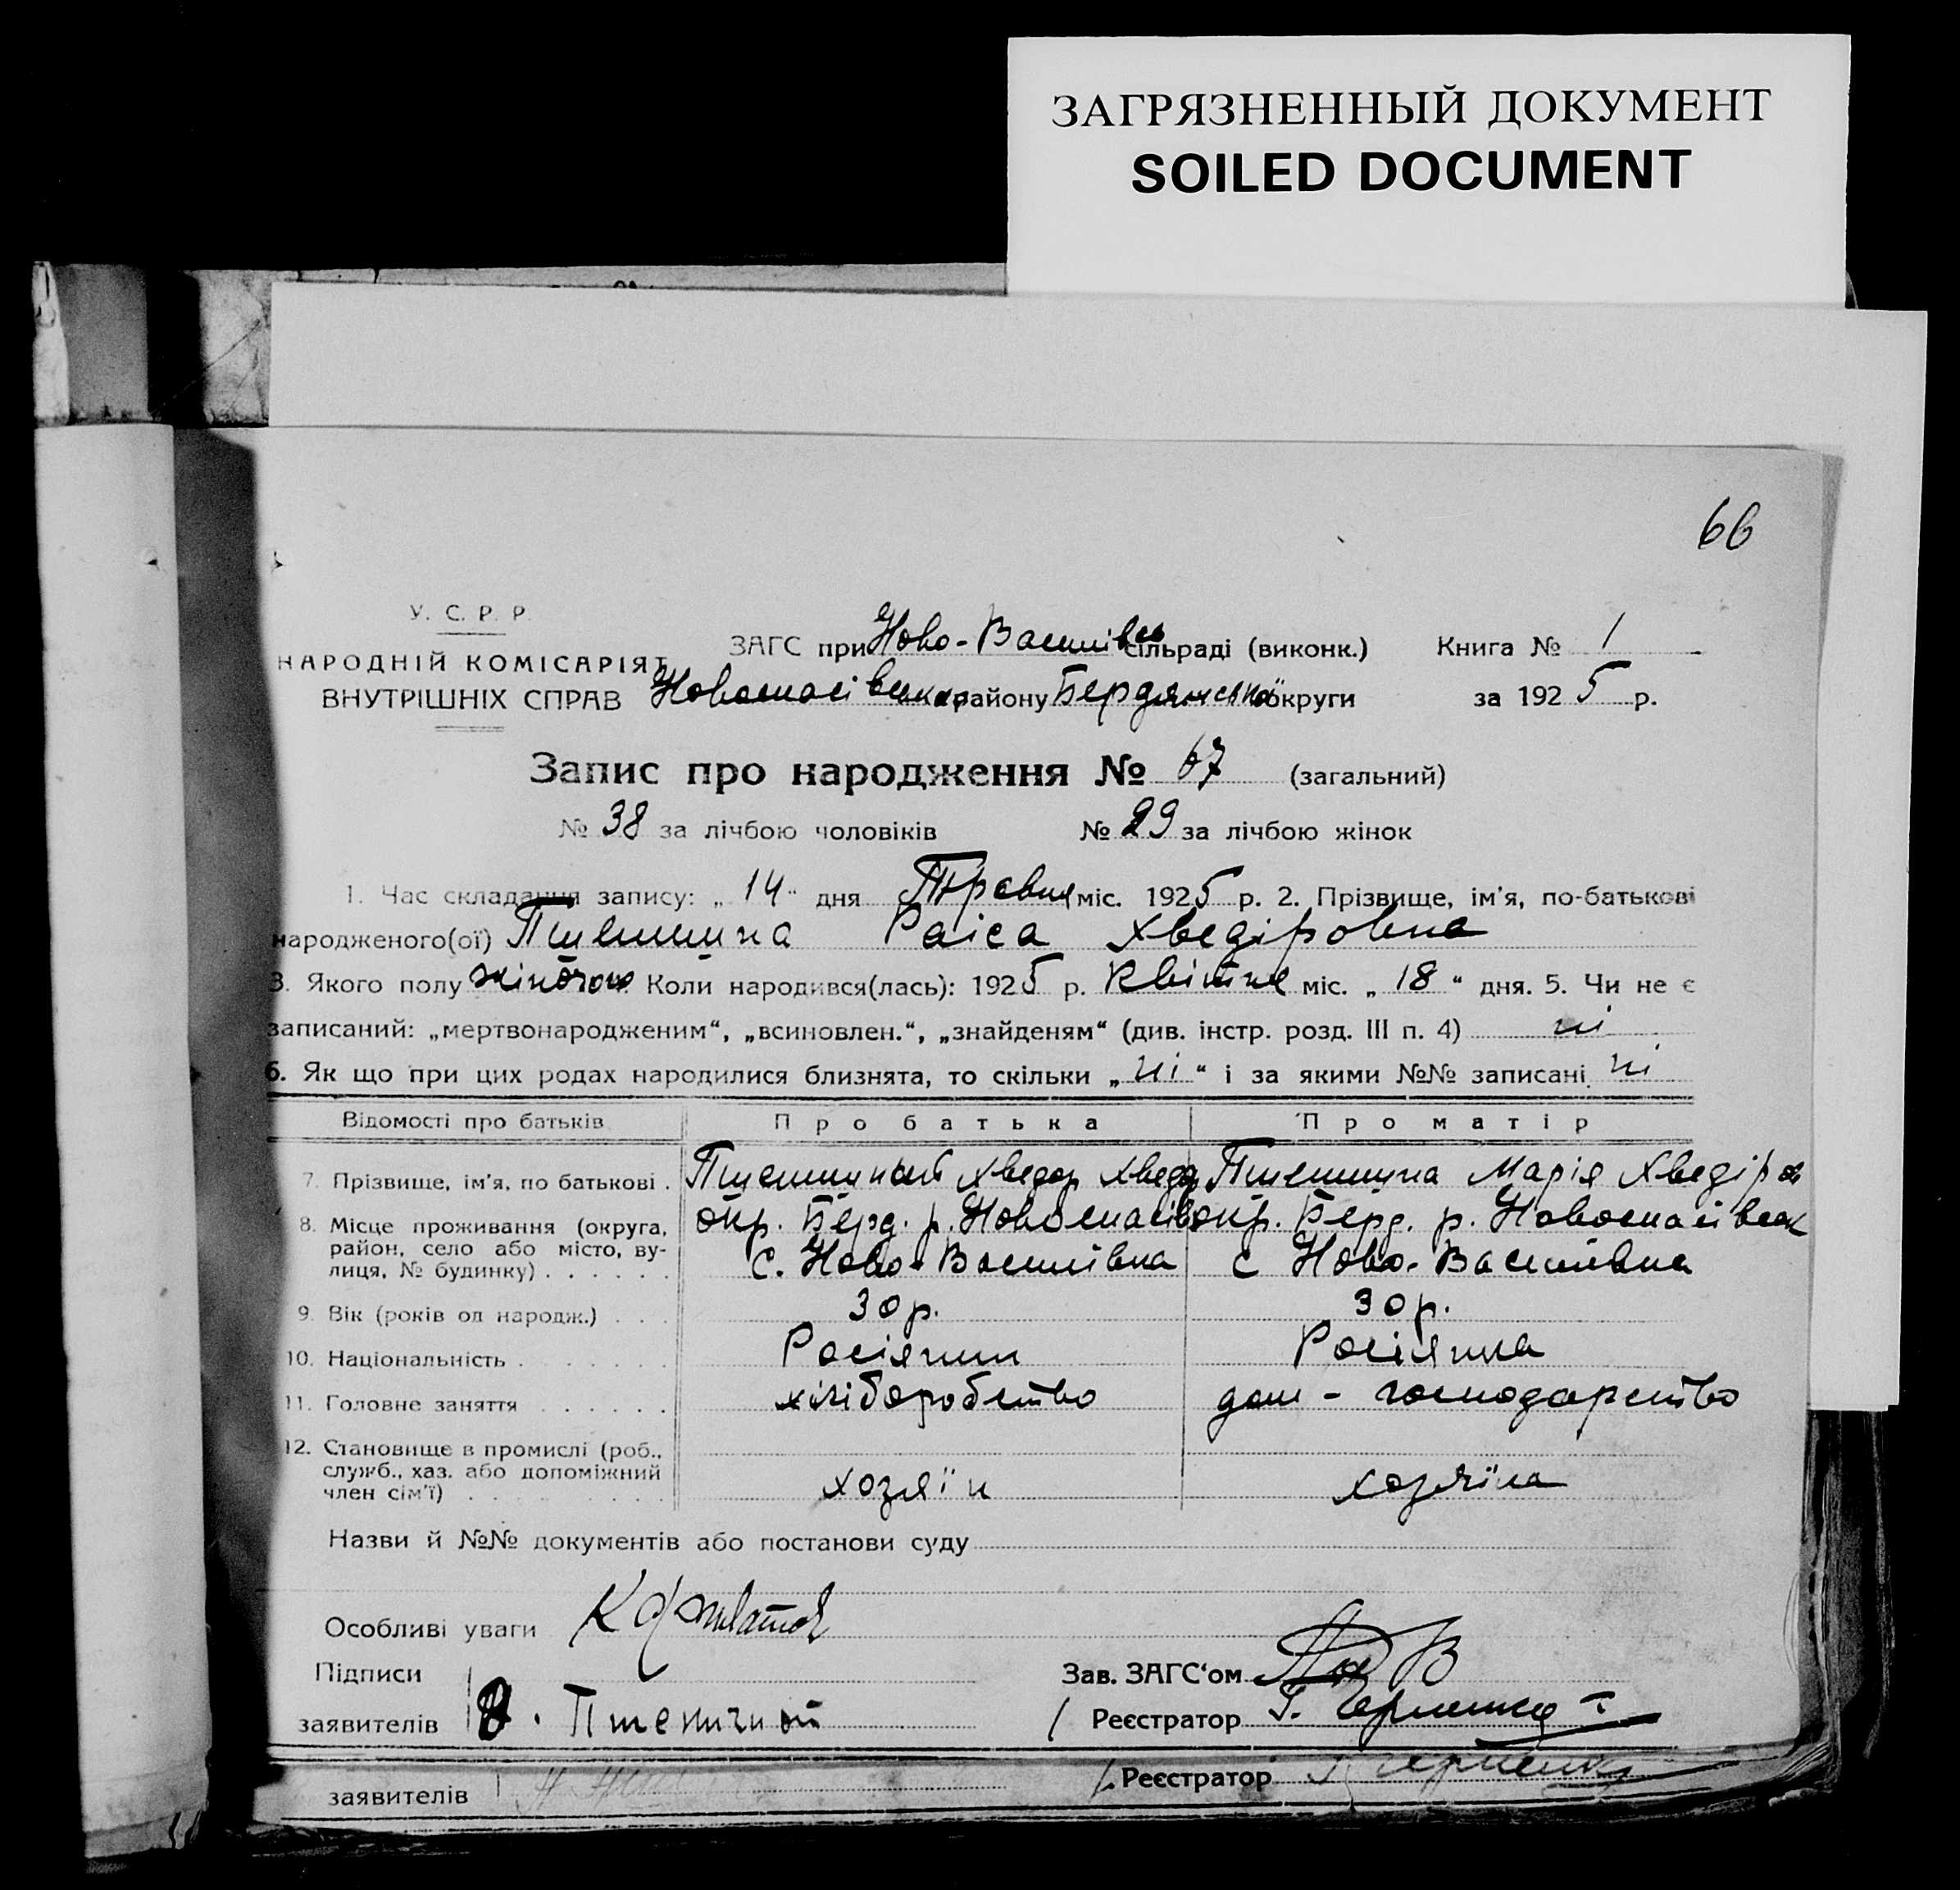 ЗАГРЯЗНЕННЫЙ ДОКУМЕНТ
SOILED DOCUMENT
66
У. С. Р. Р.
НАРОДНІЙ КОМІСАРІЯТ
ВНУТРІШНІХ СПРАВ
ЗАГС при Ново-Василівсь сільраді (виконк.) Книга № 1
Новоспасівськ району Бердянської округи за 1925 р.
Запис про народження № 67 (загальний)
№ 38 за лічбою чоловіків № 29 за лічбою жінок
1. Час складання запису: „ 14 " дня Травня міс. 1925 р. 2. Прізвище, ім'я, по-батькові
народженого(ої) Пшешишна Раіса Хведіровна
3. Якого полу жіночою Коли народився(лась): 1925 р. Квітня міс. „ 18 " дня. 5. Чи не є
записаний: „мертвонародженим", „всиновлен.", „знайденям" (див. інстр. розд. III п. 4) ні
6. Як що при цих родах народилися близнята, то скільки „ ні " і за якими №№ записані ні
Відомості про батьків Про батька Про матір
7. Прізвище, ім'я, по батькові . Хведор Хведор Марія Хведіров
8. Місце проживання (округа, район, село або місто, вулиця, № будинку) . . . . . . окр. Берд. р. Новоспасівс окр. Берд. р. Новоспасівськ
с. Ново-Василівка с Ново-Василівка
9. Вік (років од народж.) . . . 30 р. 30 р.
10. Національність . . . . . . . Росіянин Росіянка
11. Головне заняття . . . . . . хліборобство дом - господарство
12. Становище в промислі (роб., служб., хаз. або допоміжний член сім'ї) . . . . . . . . . хозяїн хозяїка
Назви й №№ документів або постанови суду
Особливі уваги
Підписи
заявителів . Пшеничной
Зав. ЗАГС'ом
Реєстратор Г.
заявителів Реєстратор